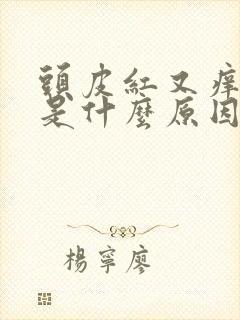 頭皮紅又痒
是什麼原因
楊寧廖